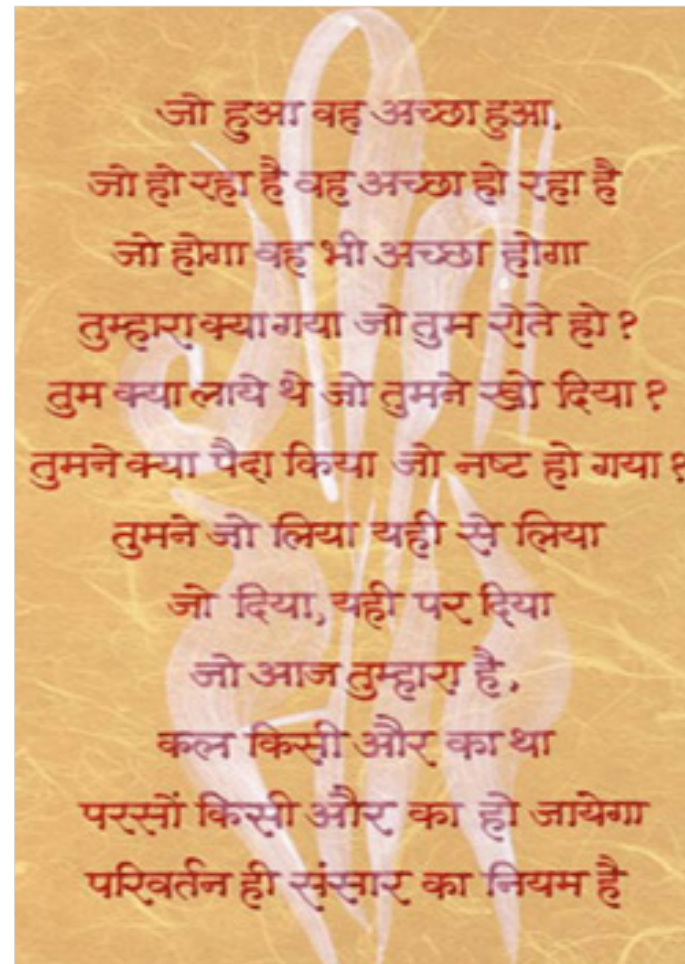 जो हुआ वह अच्छा हुआ,
जो हो रहा है वह अच्छा हो रहा है
जो होगा वह भी अच्छा होगा
तुम्हारा क्या गया जो तुम रोते हो ?
तुम क्या लाये थे जो तुमने खो दिया ?
तुमने क्या पैदा किया जो नष्ट हो गया ?
तुमने जो लिया यही से लिया
जो दिया, यही पर दिया
जो आज तुम्हारा है,
कल किसी और का था
परसों किसी और का हो जायेगा
परिवर्तन ही संसार का नियम है